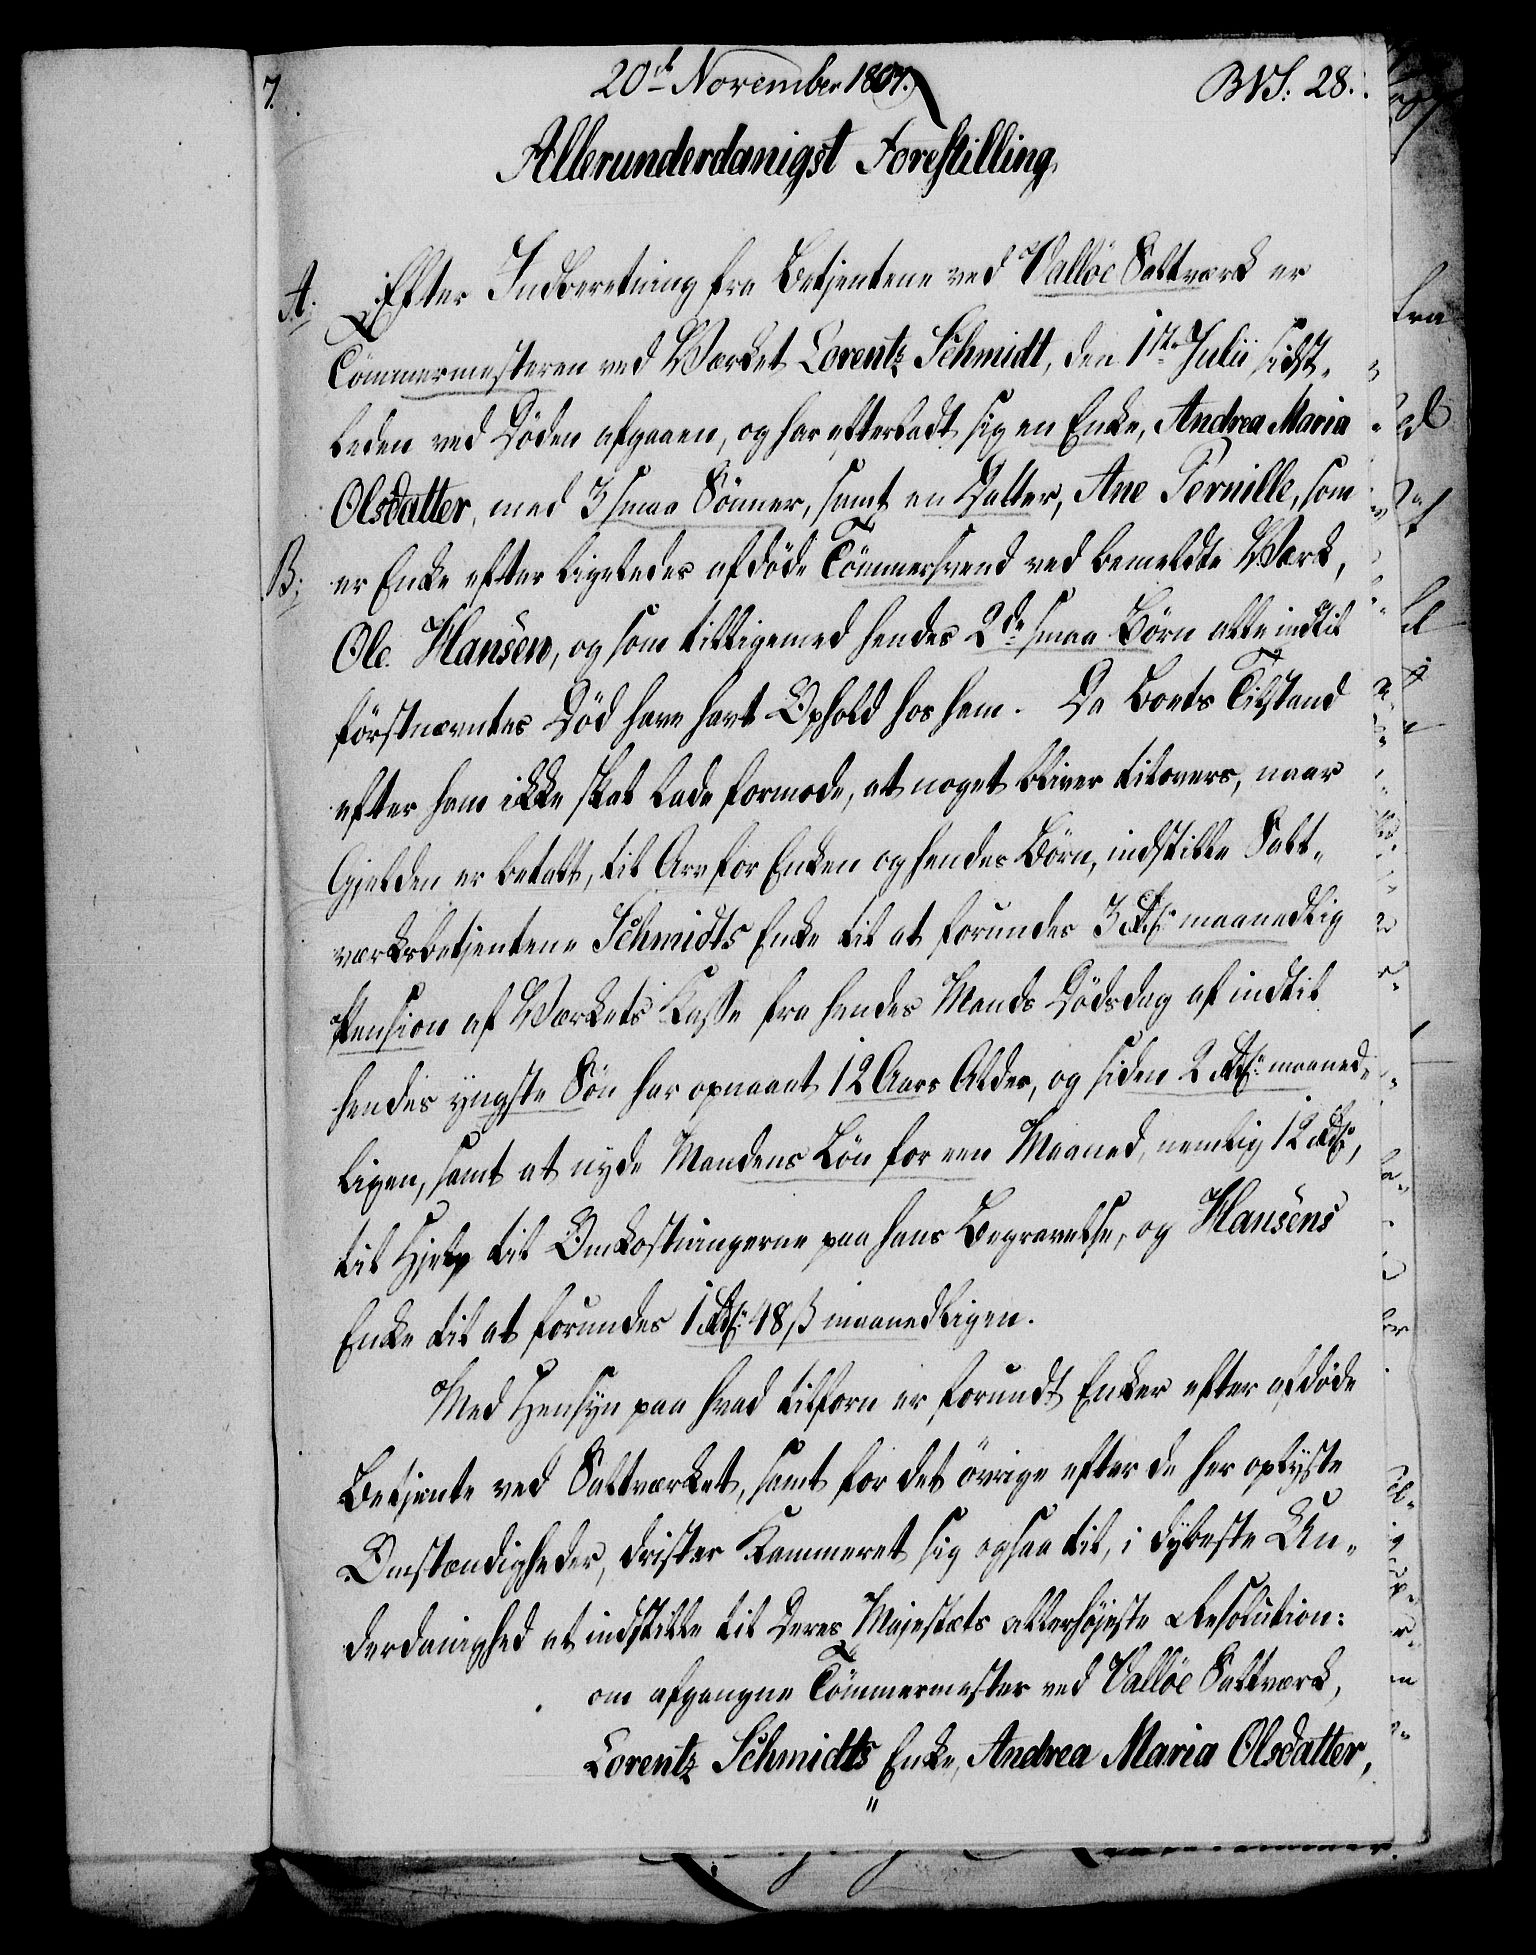 7.
20de November 1807.
BVS: 28.
Allerunderdanigst Forestilling.
A. Efter Indberetning fra Betjentene ved Valløe Saltværk er
Tömmermesteren ved Værket Lorentz Schmidt, den 1ste Julii sidst-
leden ved Døden afgaaen, og har efterladt sig en Enke, Andrea Maria
Olsdatter, med 3 smaa Sönner, samt en Datter, Ane Pernille, som
B. er Enke efter ligeledes afdöde Tömmersvend ved bemeldte Værk,
Ole Hansen, og som tilligemed hendes 2de smaa Börn alle indtil
förstnævntes Död have havt Ophold hos ham. Da Boets Tilstand
efter ham ikke skal lade formode, at noget bliver tilovers, naar
Gjelden er betalt, til Arv for Enken og hendes Börn, indstille Salt-
værksbetjentene Schmidts Enke til at forundes 3 Rdlr. maanedlig
Pension af Værkets Kasse fra hendes Mands Dödsdag af indtil
hendes yngste Sön har opnaaet 12 Aars Alder, og siden 2 Rdlr. maaned-
ligen, samt at nyde Mandens Lön for een Maaned, nemlig 12 Rdlr.,
til Hjelp til Omkostningerne paa hans Begravelse, og Hansens
Enke til at forundes 1 Rdlr. 48 ß maanedligen.
Med Hensyn paa hvad tilforn er forundt Enker efter afdöde
Betjente ved Saltværket, samt for det övrige efter de her oplyste
Omstændigheder, drister Kammeret sig ogsaa til, i dybeste Un-
derdanighed at indstille til Deres Majestæts allerhöjeste Resolution:
om afgangne Tömmermester ved Valløe Saltværk,
Lorentz Schmidts Enke, Andrea Maria Olsdatter,